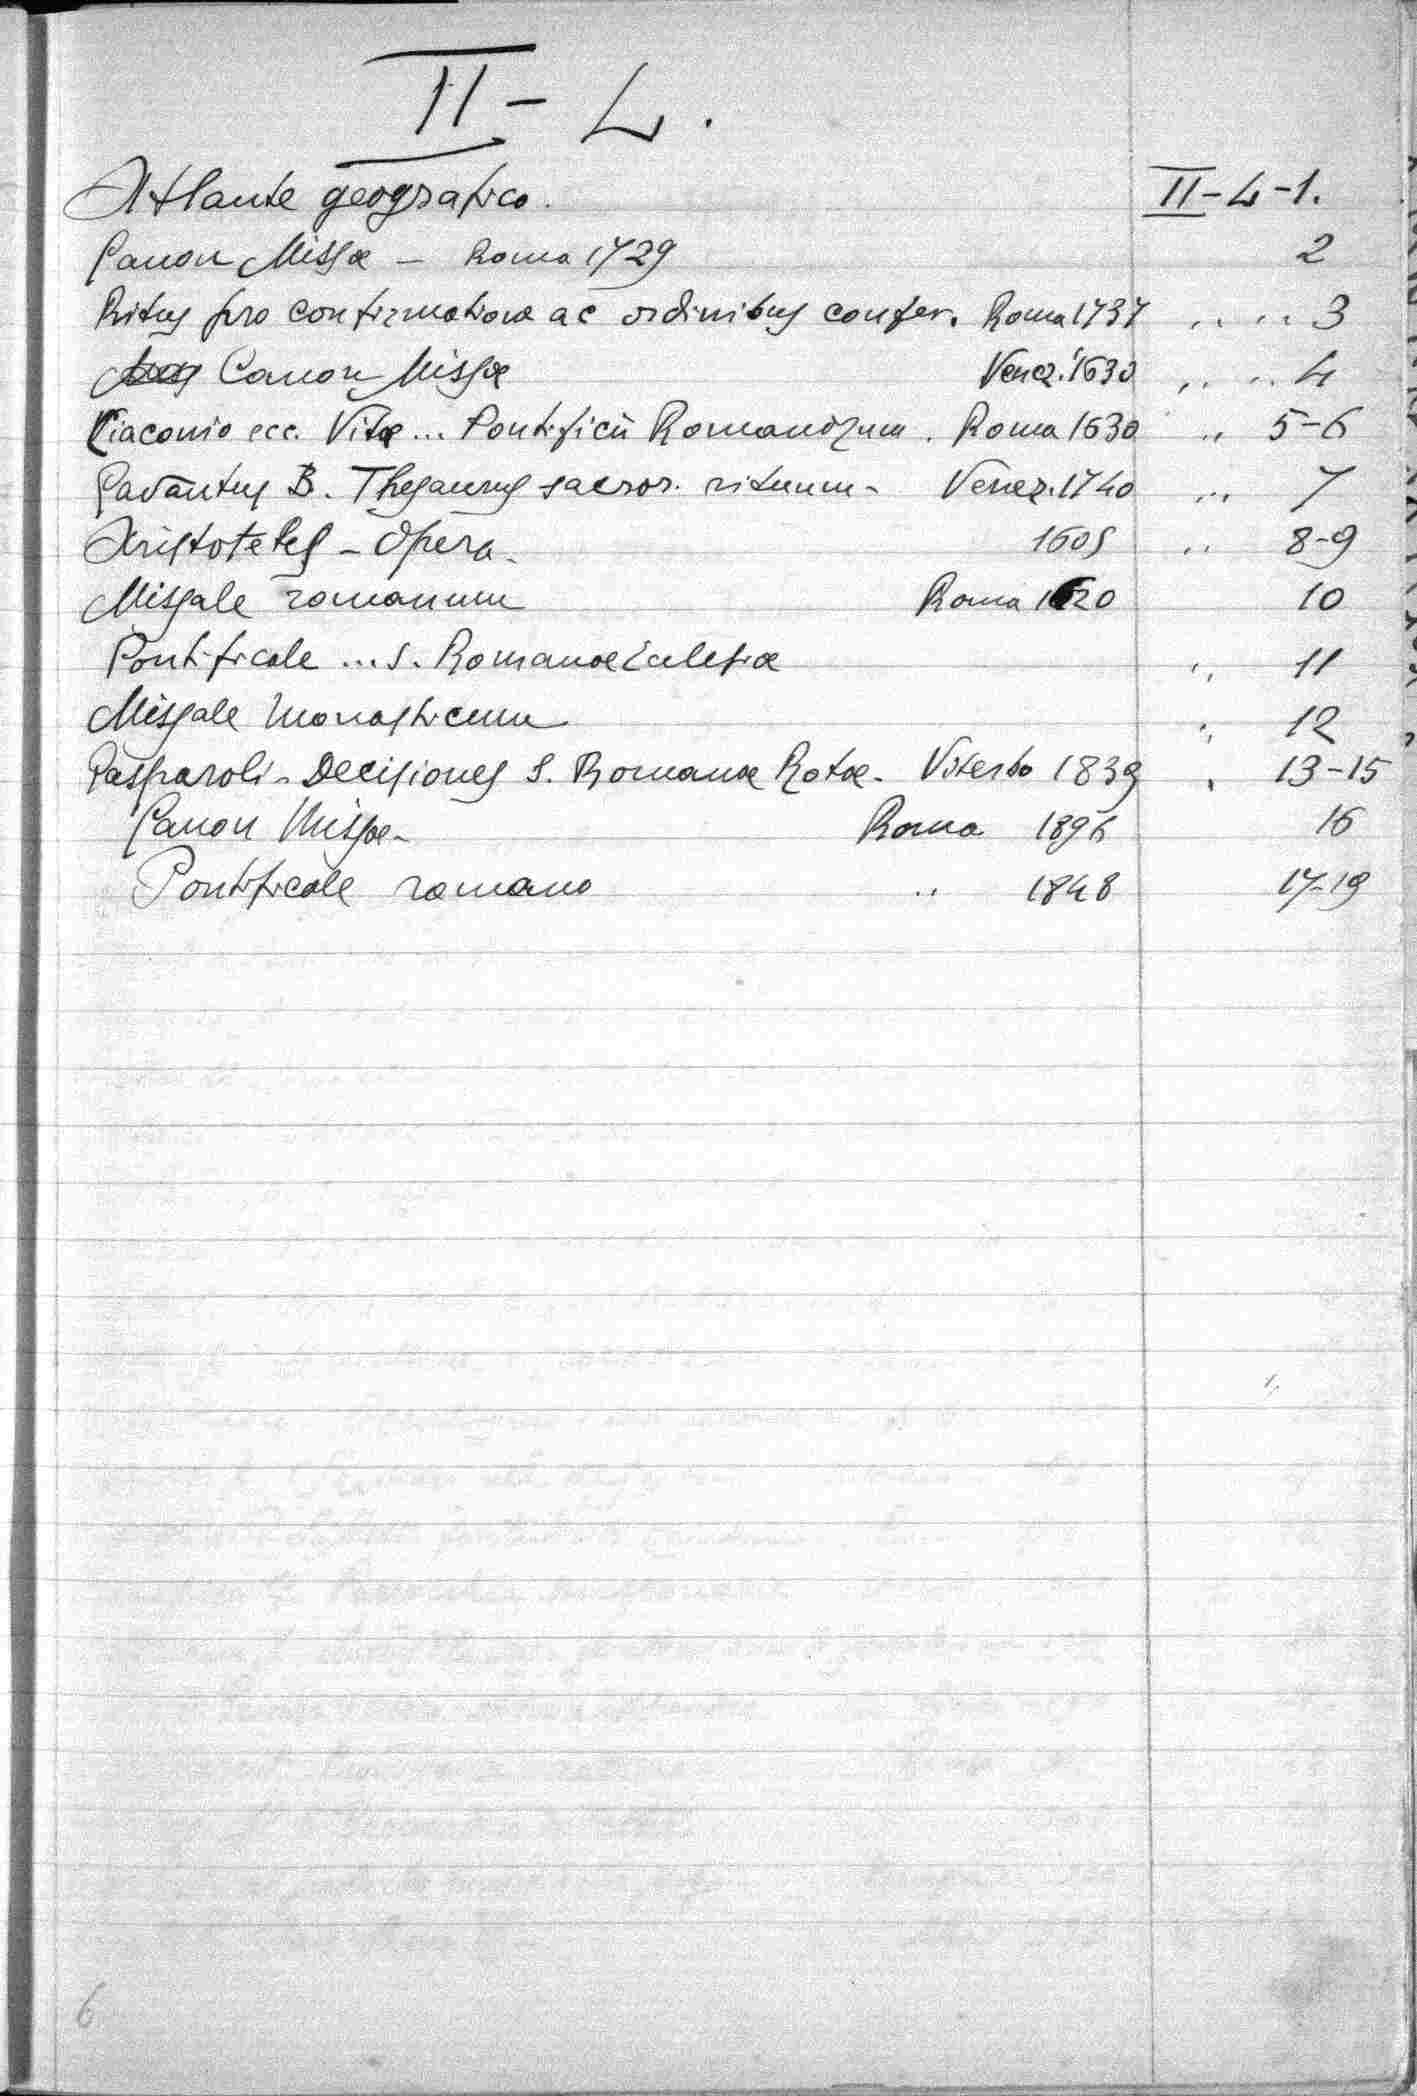 II - L.
Atlante geografico. II-L-1.
Canon Missæ - Roma 1729 2
Ritus pro confirmationæ ac ordinibus confer. Roma 1737 " " 3
Canon Missæ Venez. 1630 " " 4
Ciaconio ecc. Vitæ ... Pontificū Romanorum. Roma 1630 " 5-6
Gavantus B. Thesaurus sacror. rituum - Venez. 1740 " 7
Aristoteles - Opera - 1605 " 8-9
Missale romanum Roma 1620 10
Pontificale ... S. Romanæ Eclesiæ " 11
Missale Monasticum " 12
Gasparoli - Decisiones S. Romanæ Rotæ - Viterbo 1839 " 13-15
Canon Missæ - Roma 1896 16
Pontificale romano " 1848 17-19
6